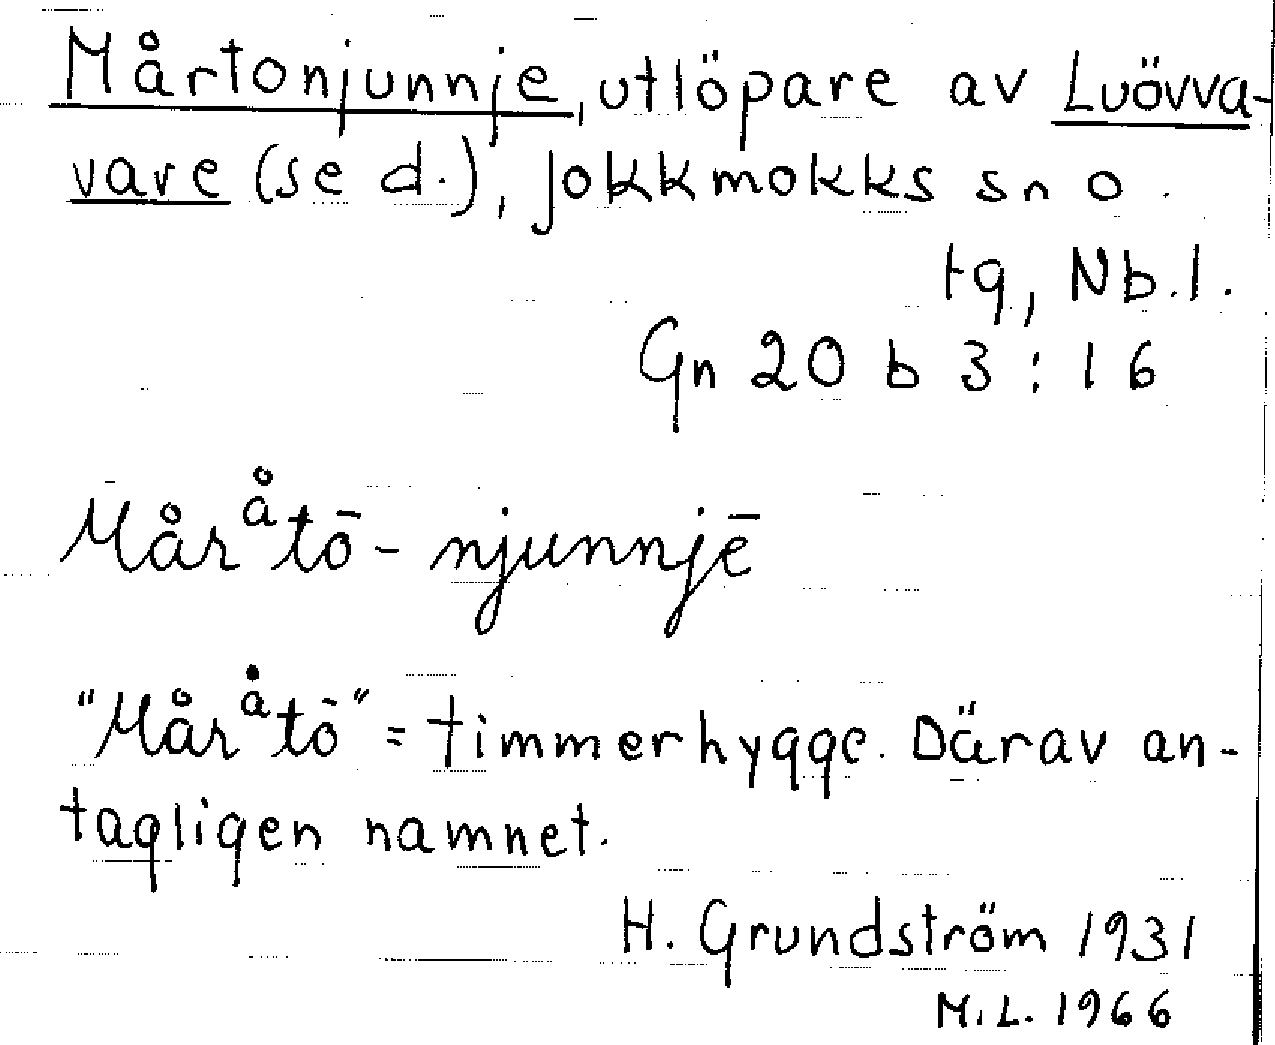 Mårtonjunnje, utlöpare av Luövva-
vare (se d.), Jokkmokks sn o.
tg, Nb.l.
Gn 20 b 3:16
Måråtō-njunnjē
"Måråtō" = timmerhygge. Därav an-
tagligen namnet.
H. Grundström 1931
M.L. 1966